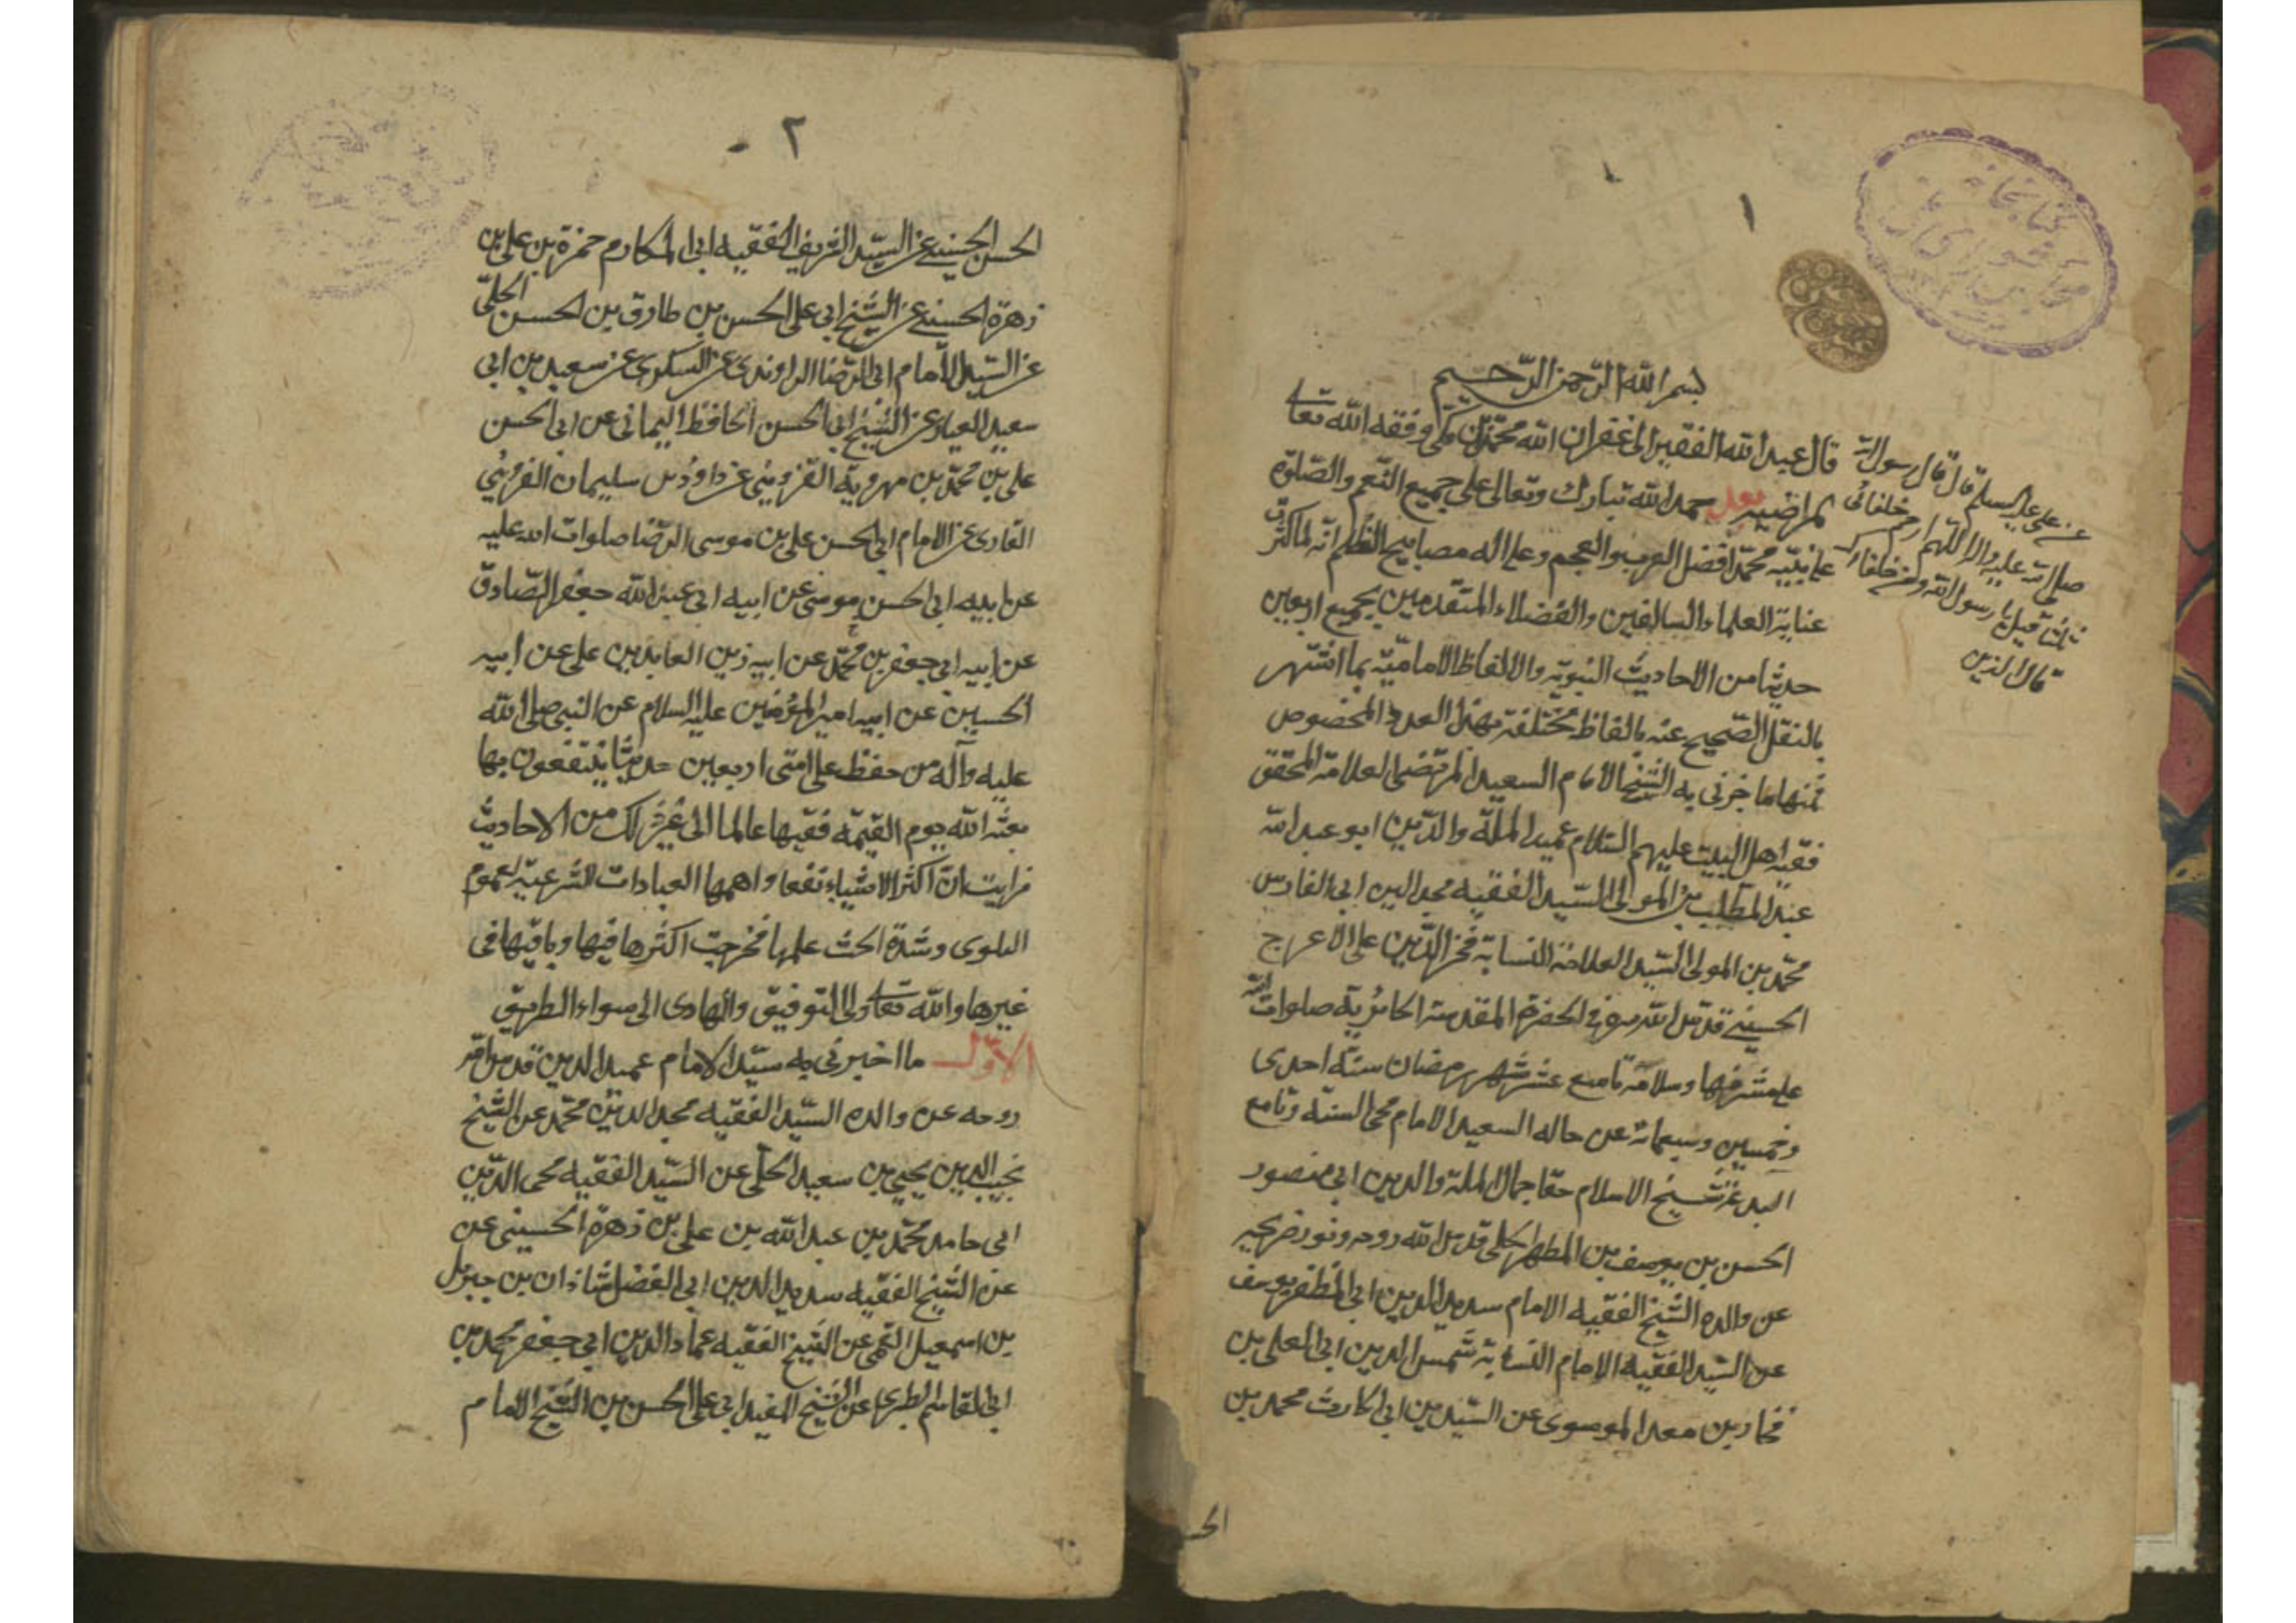 ١
بسم الله الرّحمن الرّحيم
قال عبد الله الفقير الى غفران الله محمّد بن مكّى وفقه الله تعالى
لمراضيه بعد حمد الله تبارك وتعالى على جميع النّعم والصّلوة
على نبيّه محمّد افضل العرب والعجم وعلى اله مصابيح الظّلم انّه لما كثرت
عناية العلماء السالفين والفضلاء المتقدمين بجميع اربعين
حديثا من الاحاديث النبويّه والالفاظ الاماميّه بما اشتهر
بالنقل الصّحيح عنه بالفاظ مختلفة بهذا العدد المخصوص
فمنها ما خبرنى به الشّيخ الامام السعيد المرتضى العلامّة المحقق
فقيه اهل البيت عليهم السّلام عميد الملّة والدّين ابو عبد الله
عبد المطّلب بن المولى السّيد الفقيه مجد الدين ابى الفارس
محمّد بن المولى السّيد العلامة النسابة فخر الدّين على الاعرج
الحسينى قدس الله سره فى الحضرة المقدسة الحائريّة صلوات الله
على مشرفها وسلامه تاسع عشر شهر رمضان سنة احدى
وخمسين وسبعمائة عن خاله السعيد الامام محى السنة وقامع
البدعة شيخ الاسلام حقا جمال الملة والدين ابى منصور
الحسن بن يوسف بن المطهر الحلى قدس الله روحه ونور ضريحه
عن والده الشّيخ الفقيه الامام سديد الدين ابى المظفر يوسف
عن السّيد الفقيه الامام النسابة شمس الدين ابى المعلى بن
فخار بن معد الموسوى عن السّيد بن ابى الحارث محمد بن
الحـ
عن على عليه السلم قال قال رسول الله
صلى الله عليه واله اللّهم ارحم خلفائى
ثلثا قيل يا رسول الله ومن خلفاؤك
قال الذين
٢
الحسن الحسينى عن السّيد الشّريف الفقيه ابى المكارم حمزة بن على بن
زهرة الحسينى عن الشّيخ ابى على الحسن بن طارق بن الحسن الحلّى
عن السّيد الامام ابى الرّضا الراوندى عن السكرى عن سعيد بن ابى
سعيد العيار عن الشّيخ ابى الحسن الحافظ اليمانى عن ابى الحسن
على بن محمّد بن مهرويه القزوينى عن داود بن سليمان القزوينى
الغازى عن الامام ابى الحسن على بن موسى الرّضا صلوات الله عليه
عن ابيه ابى الحسن موسى عن ابيه ابى عبد الله جعفر الصّادق
عن ابيه ابى جعفر بن محمّد عن ابيه زين العابدين على عن ابيه
الحسين عن ابيه امير المؤمنين عليه السلام عن النبى صلى الله
عليه وآله من حفظ على امتى اربعين حديثا ينتفعون بها
بعثه الله يوم القيمة فقيها عالما الى غير ذلك من الاحاديث
فرايت انّ اكثر الاشياء نفعا واهمها العبادات الشرعيّة لعموم
البلوى وشدّة الحث عليها فخرجت اكثرها فيها وباقيها فى
غيرها والله تعالى ولى التوفيق والهادى الى سواء الطريق
الاوّل ما اخبرنى به سيّد الامام عميد الدين قدس الله
روحه عن والده السّيد الفقيه مجد الدين محمّد عن الشّيخ
نجيب الدين يحيى بن سعيد الحلّى عن السّيد الفقيه محى الدّين
ابى حامد محمّد بن عبد الله بن على بن زهرة الحسينى عن
عن الشّيخ الفقيه سديد الدين ابى الفضل شاذان بن جبرئل
بن اسمعيل القمى عن الشّيخ الفقيه عماد الدين ابى جعفر محمد بن
ابى القاسم الطبرى عن الشّيخ المفيد ابى على الحسن بن الشّيخ الامام